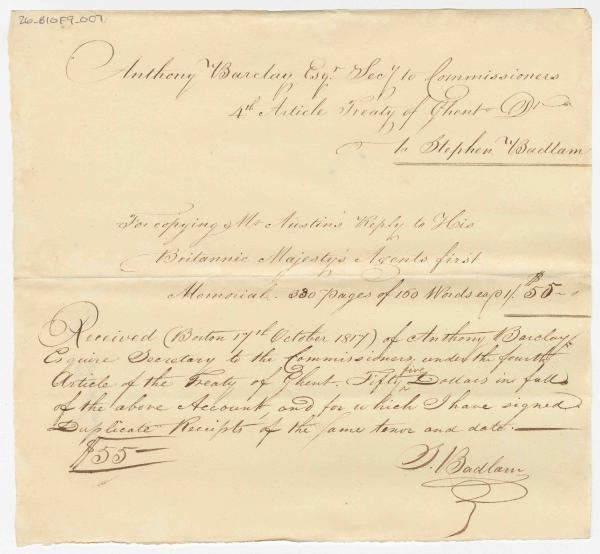 26-B10F9-007
Anthony Barclay Esqr. Secy to Commissioners
4th Article Treaty of Ghent Dr
to Stephen Badlam
For copying Mr Austin's Reply to His
Britannic Majesty's Agents first
Memorial. 330 pages of 160 Words ea @ 1/. $55—
Received (Boston 17th October 1817) of Anthony Barclay
Esquire Secretary to the Commissioners under the fourth
Article of the Treaty of Ghent. Fifty five Dollars in full
of the above Account, and for which I have signed
Duplicate Receipts of the same tenor and date.
$55—
S. Badlam